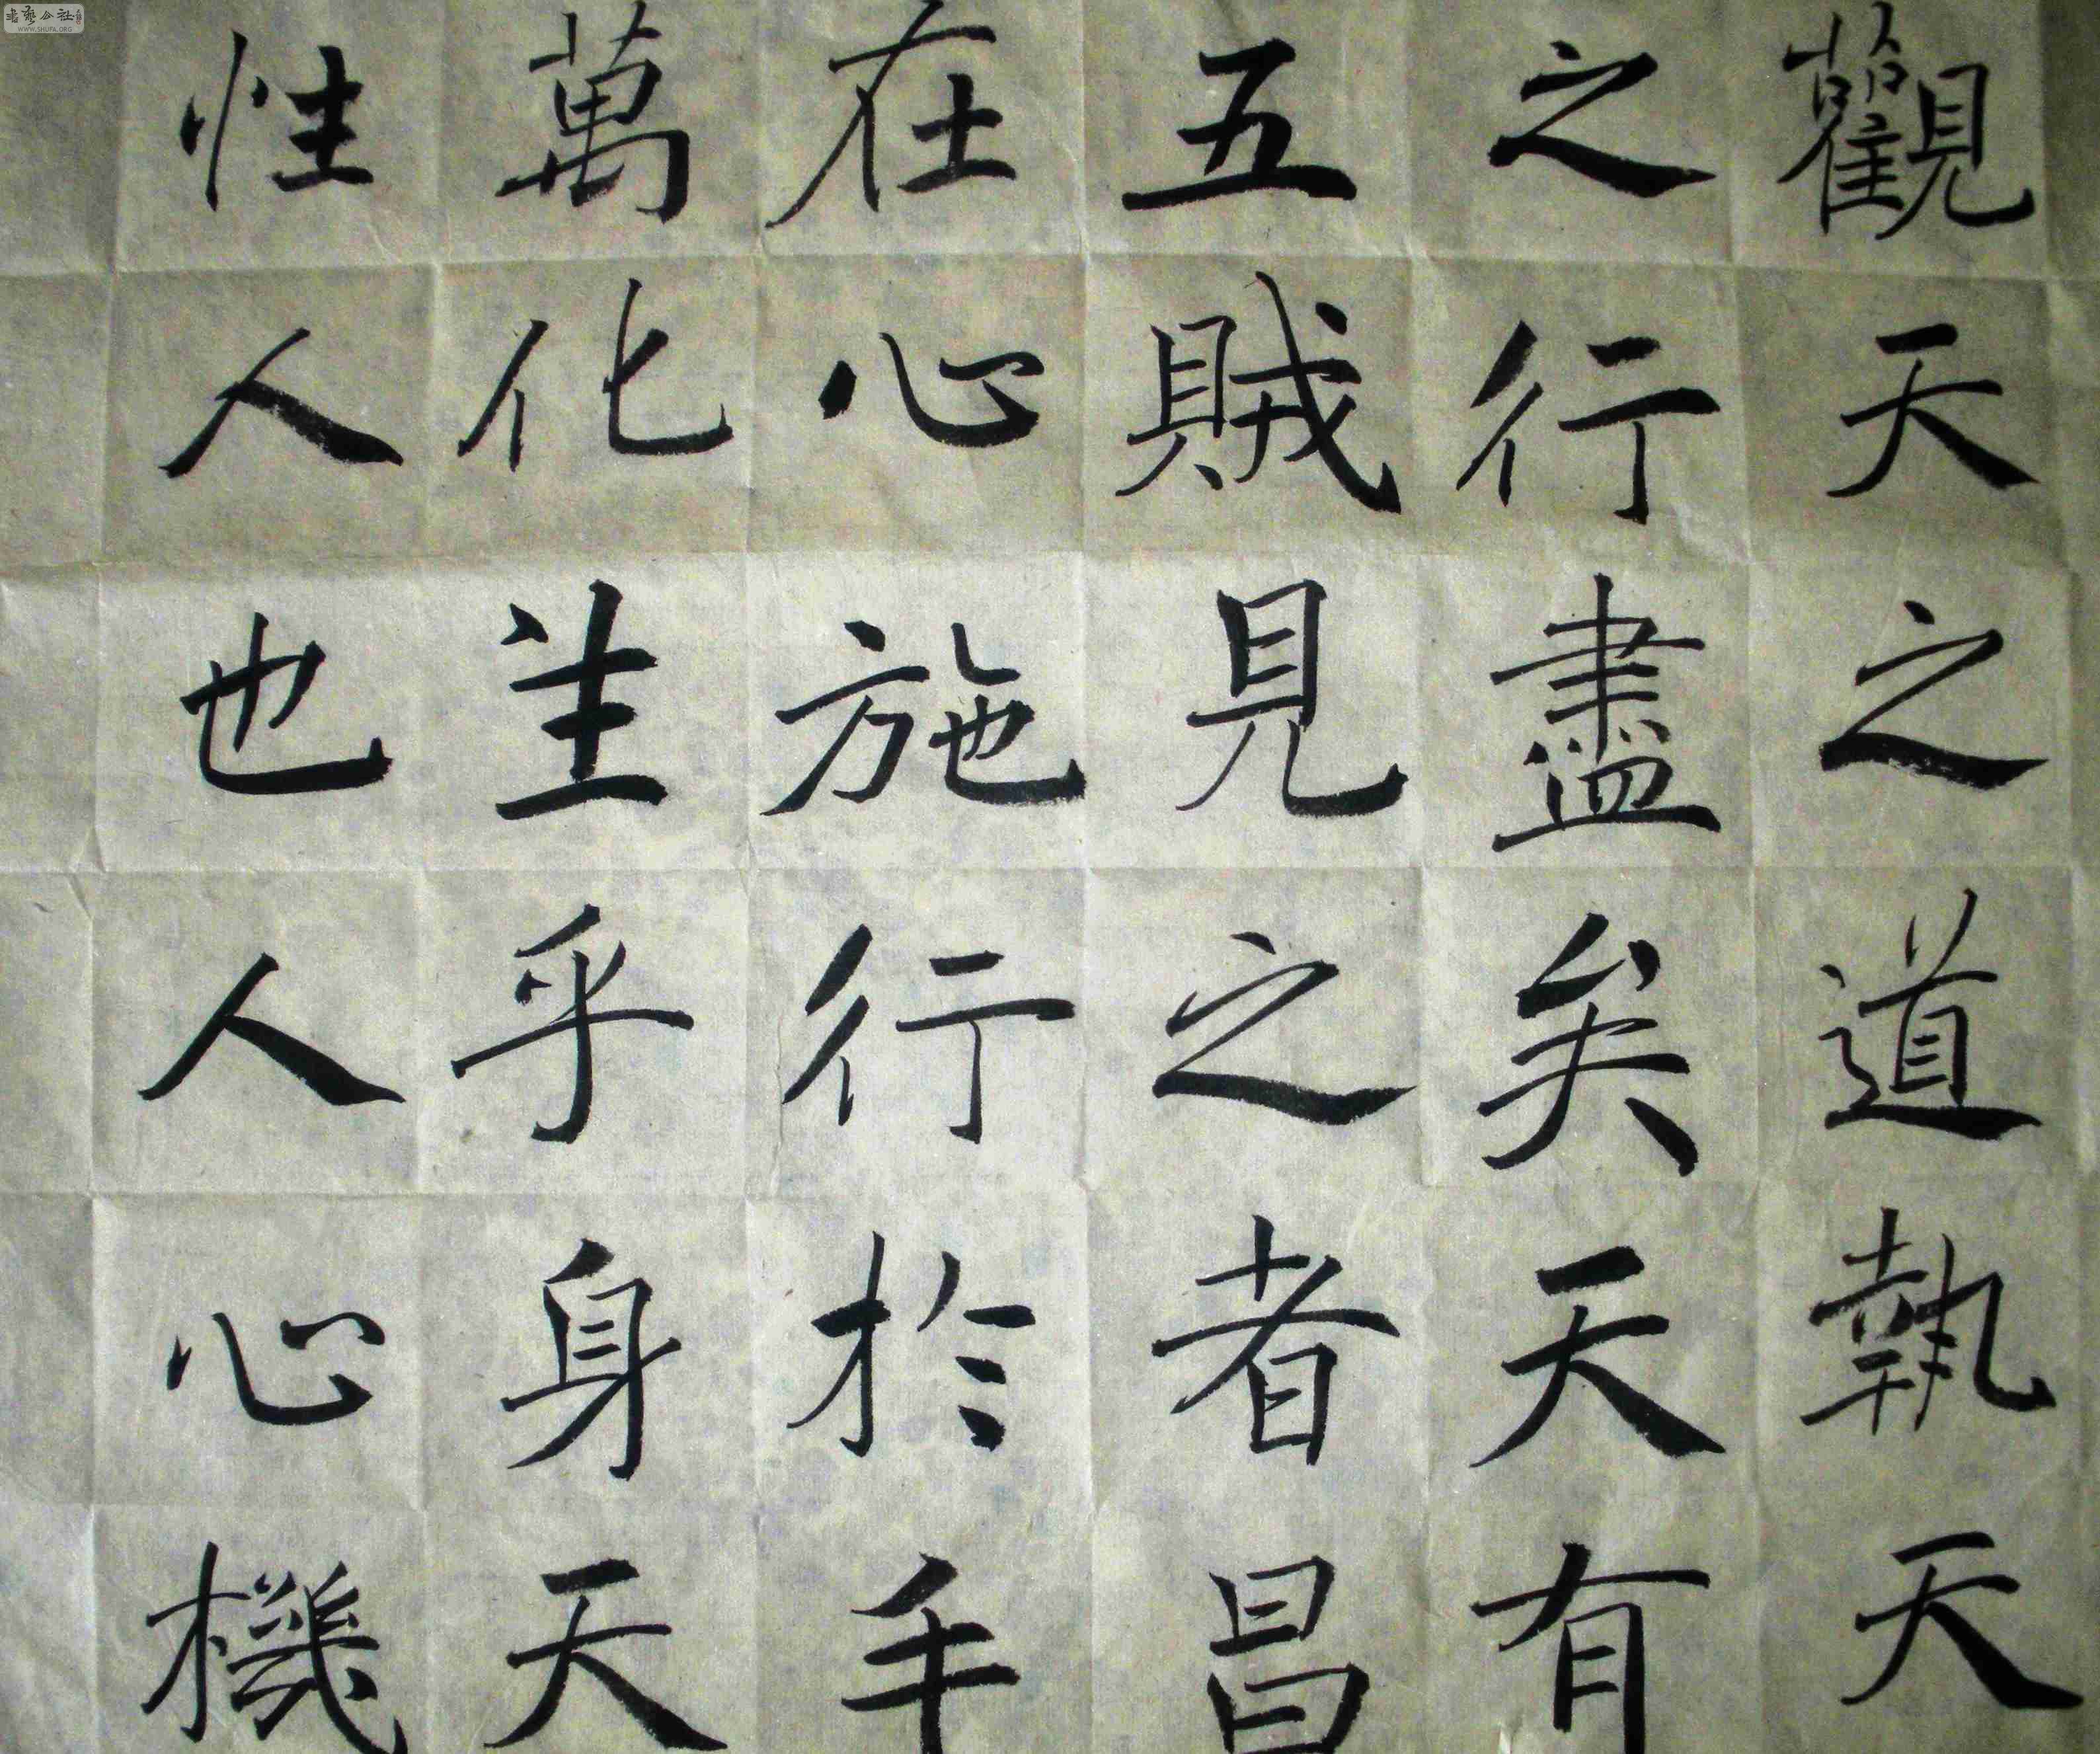 觀天之道執天
之行盡矣天有
五賊見之者昌
在心施行於手
萬化生乎身天
性人也人心機
書藝公社
WWW.SHUFA.ORG